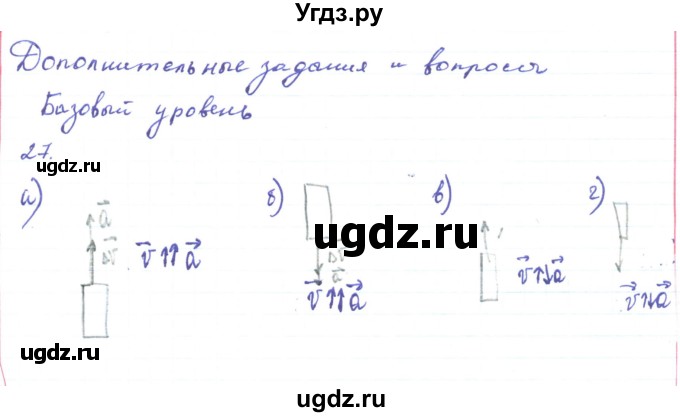 Угдз.ру
Дополнительные задания и вопросы
Базовый уровень
27.
ugdz.ru
а) б) в) г)
a⃗
Δv⃗
v⃗↑↑a⃗
ugdz.ru
Δv⃗
a⃗
v⃗↑↑a⃗
v⃗↑↓a⃗
v⃗↑↓a⃗
ugdz.ru
ugdz.ru
ugdz.ru
ugdz.ru